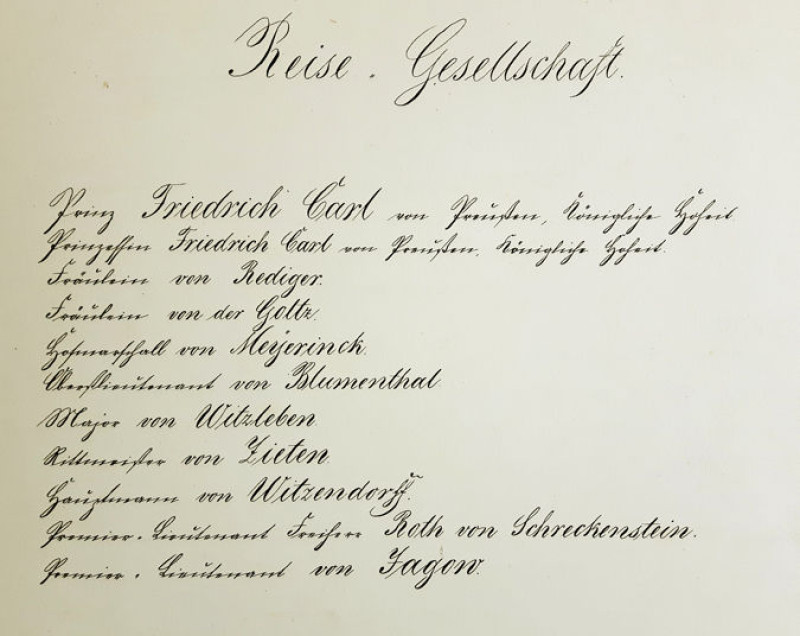 Reise-Gesellschaft.
Prinz Friedrich Carl von Preußen, Königliche Hoheit
Prinzessin Friedrich Carl von Preußen, Königliche Hoheit.
Fräulein von Rediger.
Fräulein von der Goltz.
Hofmarschall von Meyerinck.
Oberstlieutenant von Blumenthal.
Major von Witzleben.
Rittmeister von Zieten.
Hauptmann von Witzendorff.
Premier-Lieutenant Freiherr Roth von Schreckenstein.
Premier-Lieutenant von Jagow.